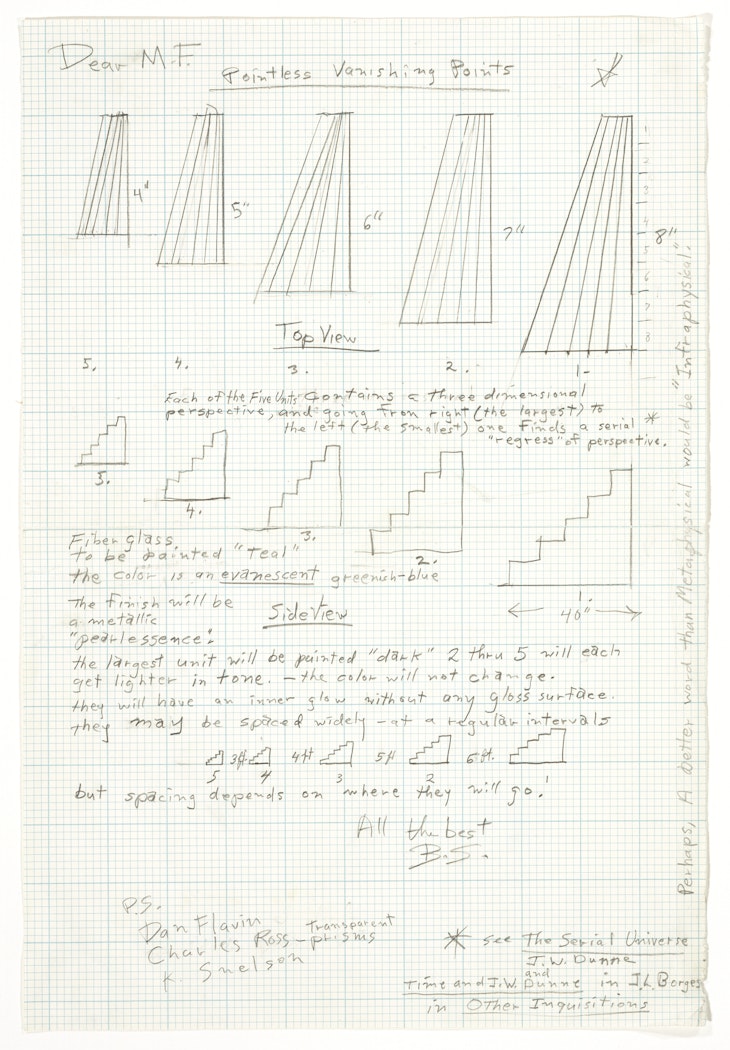 Dear M.F.
Pointless Vanishing Points
4"
5"
6"
7"
8"
1
2
3
4
5
6
7
8
Top View
5. 4. 3. 2. 1-
Each of the Five Units Contains a three dimensional
perspective, and going from right (the largest) to
the left (the smallest) one finds a serial *
"regress" of perspective.
5.
4.
3.
2.
1.
40"
Fiberglass
to be painted "teal"
the color is an evanescent greenish-blue
The Finish will be
a metallic
"pearlessence".
Side View
the largest unit will be painted "dark" 2 thru 5 will each
get lighter in tone. – the color will not change.
they will have an inner glow without any gloss surface.
they may be spaced widely – at a regular intervals
3ft 4ft 5ft 6ft.
5 4 3 2 1
but spacing depends on where they will go.
All the best
B.S.
P.S.
Dan Flavin
Charles Ross – Transparent prisms
K. Snelson
* see The Serial Universe
J.W. Dunne
and
Time and J.W. Dunne in J.L. Borges
in Other Inquisitions
Perhaps, A better word than Metaphysical would be "Infraphysical".